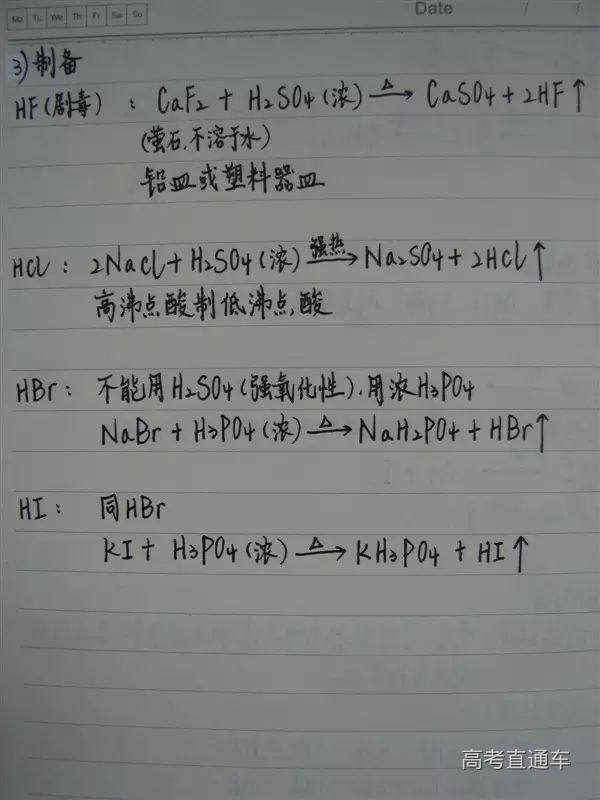 Mo Tu We Th Fr Sa Su
Date / /
3)制备
HF(剧毒) : CaF₂ + H₂SO₄(浓) —Δ→ CaSO₄ + 2HF↑
(萤石,不溶于水)
铅皿或塑料器皿
HCl: 2NaCl + H₂SO₄(浓) —强热→ Na₂SO₄ + 2HCl↑
高沸点酸制低沸点酸
HBr: 不能用H₂SO₄(强氧化性),用浓H₃PO₄
NaBr + H₃PO₄(浓) —Δ→ NaH₂PO₄ + HBr↑
HI: 同HBr
KI + H₃PO₄(浓) —Δ→ KH₃PO₄ + HI↑
高考直通车